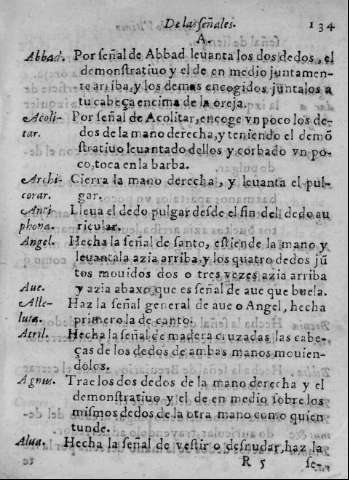 De las señales. 134
A.
Abbad. Por señal de Abbad leuanta los dos dedos, el
demonstratiuo y el de en medio juntamen-
te arriba, y los demas encogidos, juntalos a
tu cabeça encima de la oreja.
Acoli- Por señal de Acolitar, encoge vn poco los de-
tar. dos de la mano derecha, y teniendo el demõ
stratiuo leuantado dellos y corbado vn po-
co, toca en la barba.
Archi- Cierra la mano derecha, y leuanta el pul-
corar. gar.
Anti- Lleua el dedo pulgar desde el fin del dedo au
phona. ricular.
Angel. Hecha la señal de santo, estiende la mano y
leuantala azia arriba, y los quatro dedos jũ
tos mouidos dos o tres vezes azia arriba
Aue. y azia abaxo, que es señal de aue que buela.
Alle- Haz la señal general de aue o Angel, hecha
luya. primero la de canto.
Atril. Hecha la señal de madera cruzadas las cabe-
ças de los dedos de ambas manos mouien-
dolos.
Agnus. Trae los dos dedos de la mano derecha y el
demonstratiuo y el de en medio sobre los
mismos dedos de la otra mano como quien
tunde.
Alua. Hecha la señal de vestir o desnudar, haz la
R 5 se-